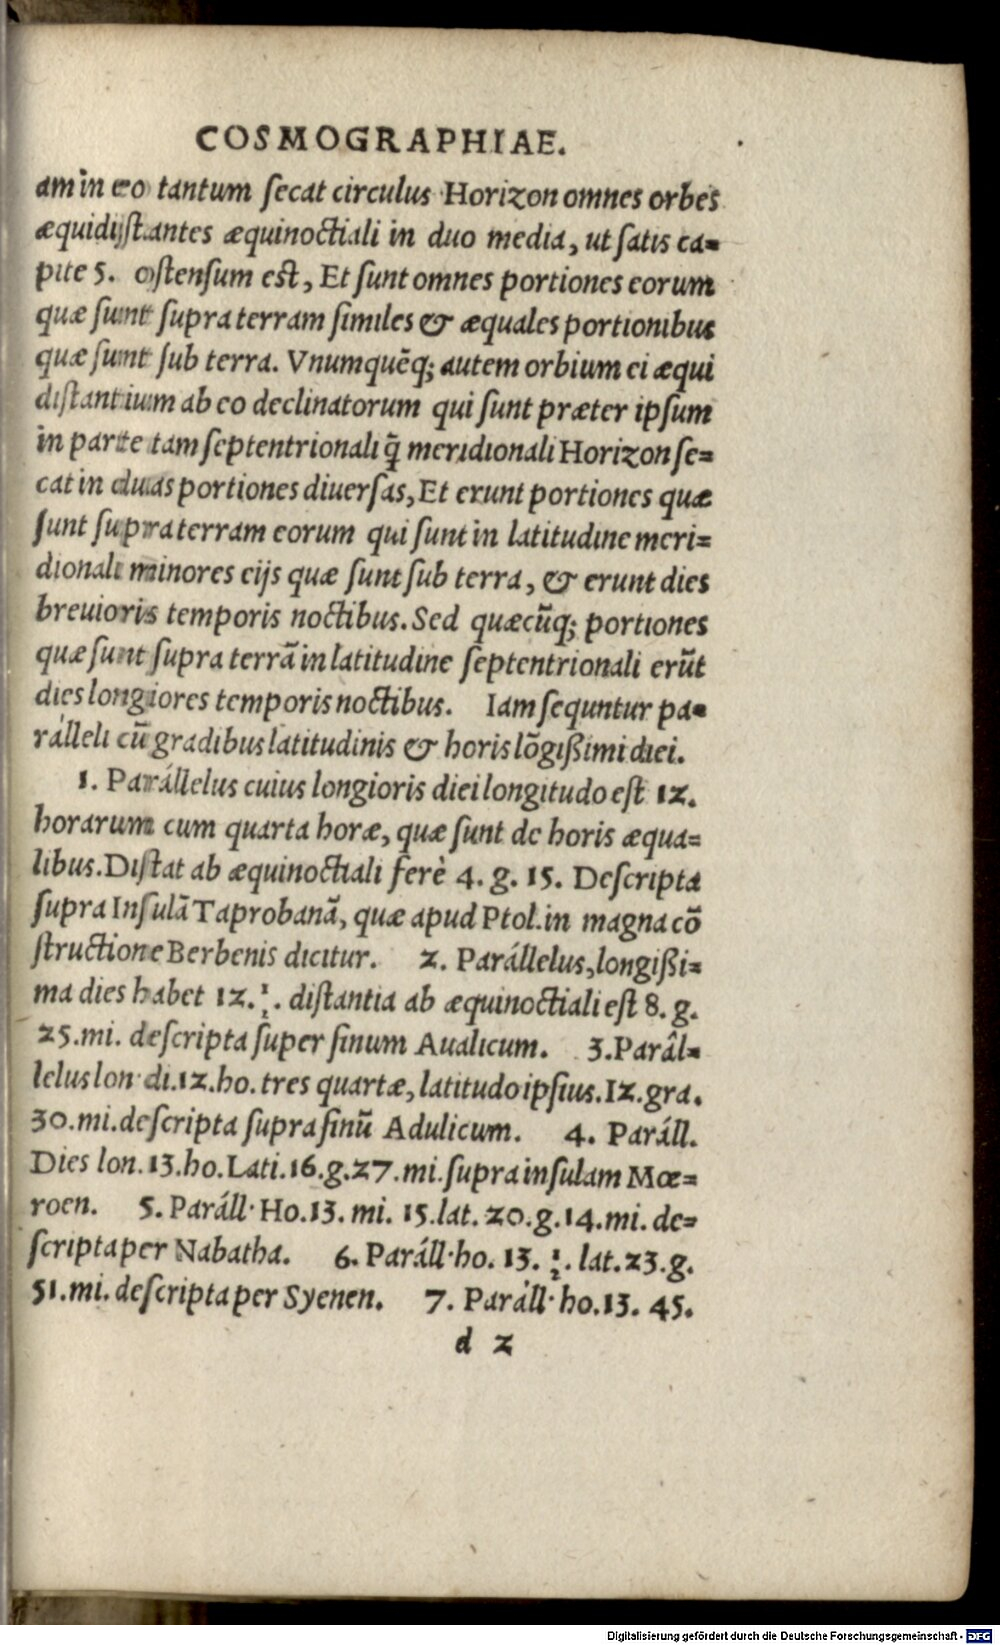 COSMOGRAPHIAE.
am in eo tantum ſecat circulus Horizon omnes orbes
æquidiſtantes æquinoctiali in duo media, ut ſatis ca=
pite 5. oſtenſum est, Et ſunt omnes portiones eorum
quæ ſunt ſupra terram ſimiles & æquales portionibus
quæ ſunt ſub terra. Vnumquēq; autem orbium ei æqui
diſtantium ab eo declinatorum qui ſunt præter ipſum
in parte tam ſeptentrionali q̃ meridionali Horizon ſe=
cat in duas portiones diuerſas, Et erunt portiones quæ
ſunt ſupra terram eorum qui ſunt in latitudine meri=
dionali minores eijs quæ ſunt ſub terra, & erunt dies
breuioris temporis noctibus. Sed quæcūq; portiones
quæ ſunt ſupra terrā in latitudine ſeptentrionali erūt
dies longiores temporis noctibus. Iam ſequntur pa=
rálleli cū gradibus latitudinis & horis lōgißimi diei.
1. Parállelus cuius longioris diei longitudo est 12.
horarum cum quarta horæ, quæ ſunt de horis æqua=
libus. Diſtat ab æquinoctiali ferè 4. g. 15. Deſcripta
ſupra Inſulā Taprobanā, quæ apud Ptol. in magna cō
ſtructione Berbenis dicitur. 2. Parállelus, longißi=
ma dies habet 12. ½. diſtantia ab æquinoctiali eſt 8. g.
25. mi. deſcripta ſuper ſinum Aualicum. 3. Parâl=
lelus lon· di. 12. ho. tres quartæ, latitudo ipſius. 12. gra.
30. mi. deſcripta ſupra ſinū Adulicum. 4. Paráll.
Dies lon. 13. ho. Lati. 16. g. 27. mi. ſupra inſulam Mœ=
roen. 5. Paráll· Ho. 13. mi. 15. lat. 20. g. 14. mi. de=
ſcripta per Nabatha. 6. Paráll· ho. 13. ½. lat. 23. g.
51. mi. deſcripta per Syenen. 7. Paráll· ho. 13. 45.
d 2
Digitalisierung gefördert durch die Deutsche Forschungsgemeinschaft - DFG